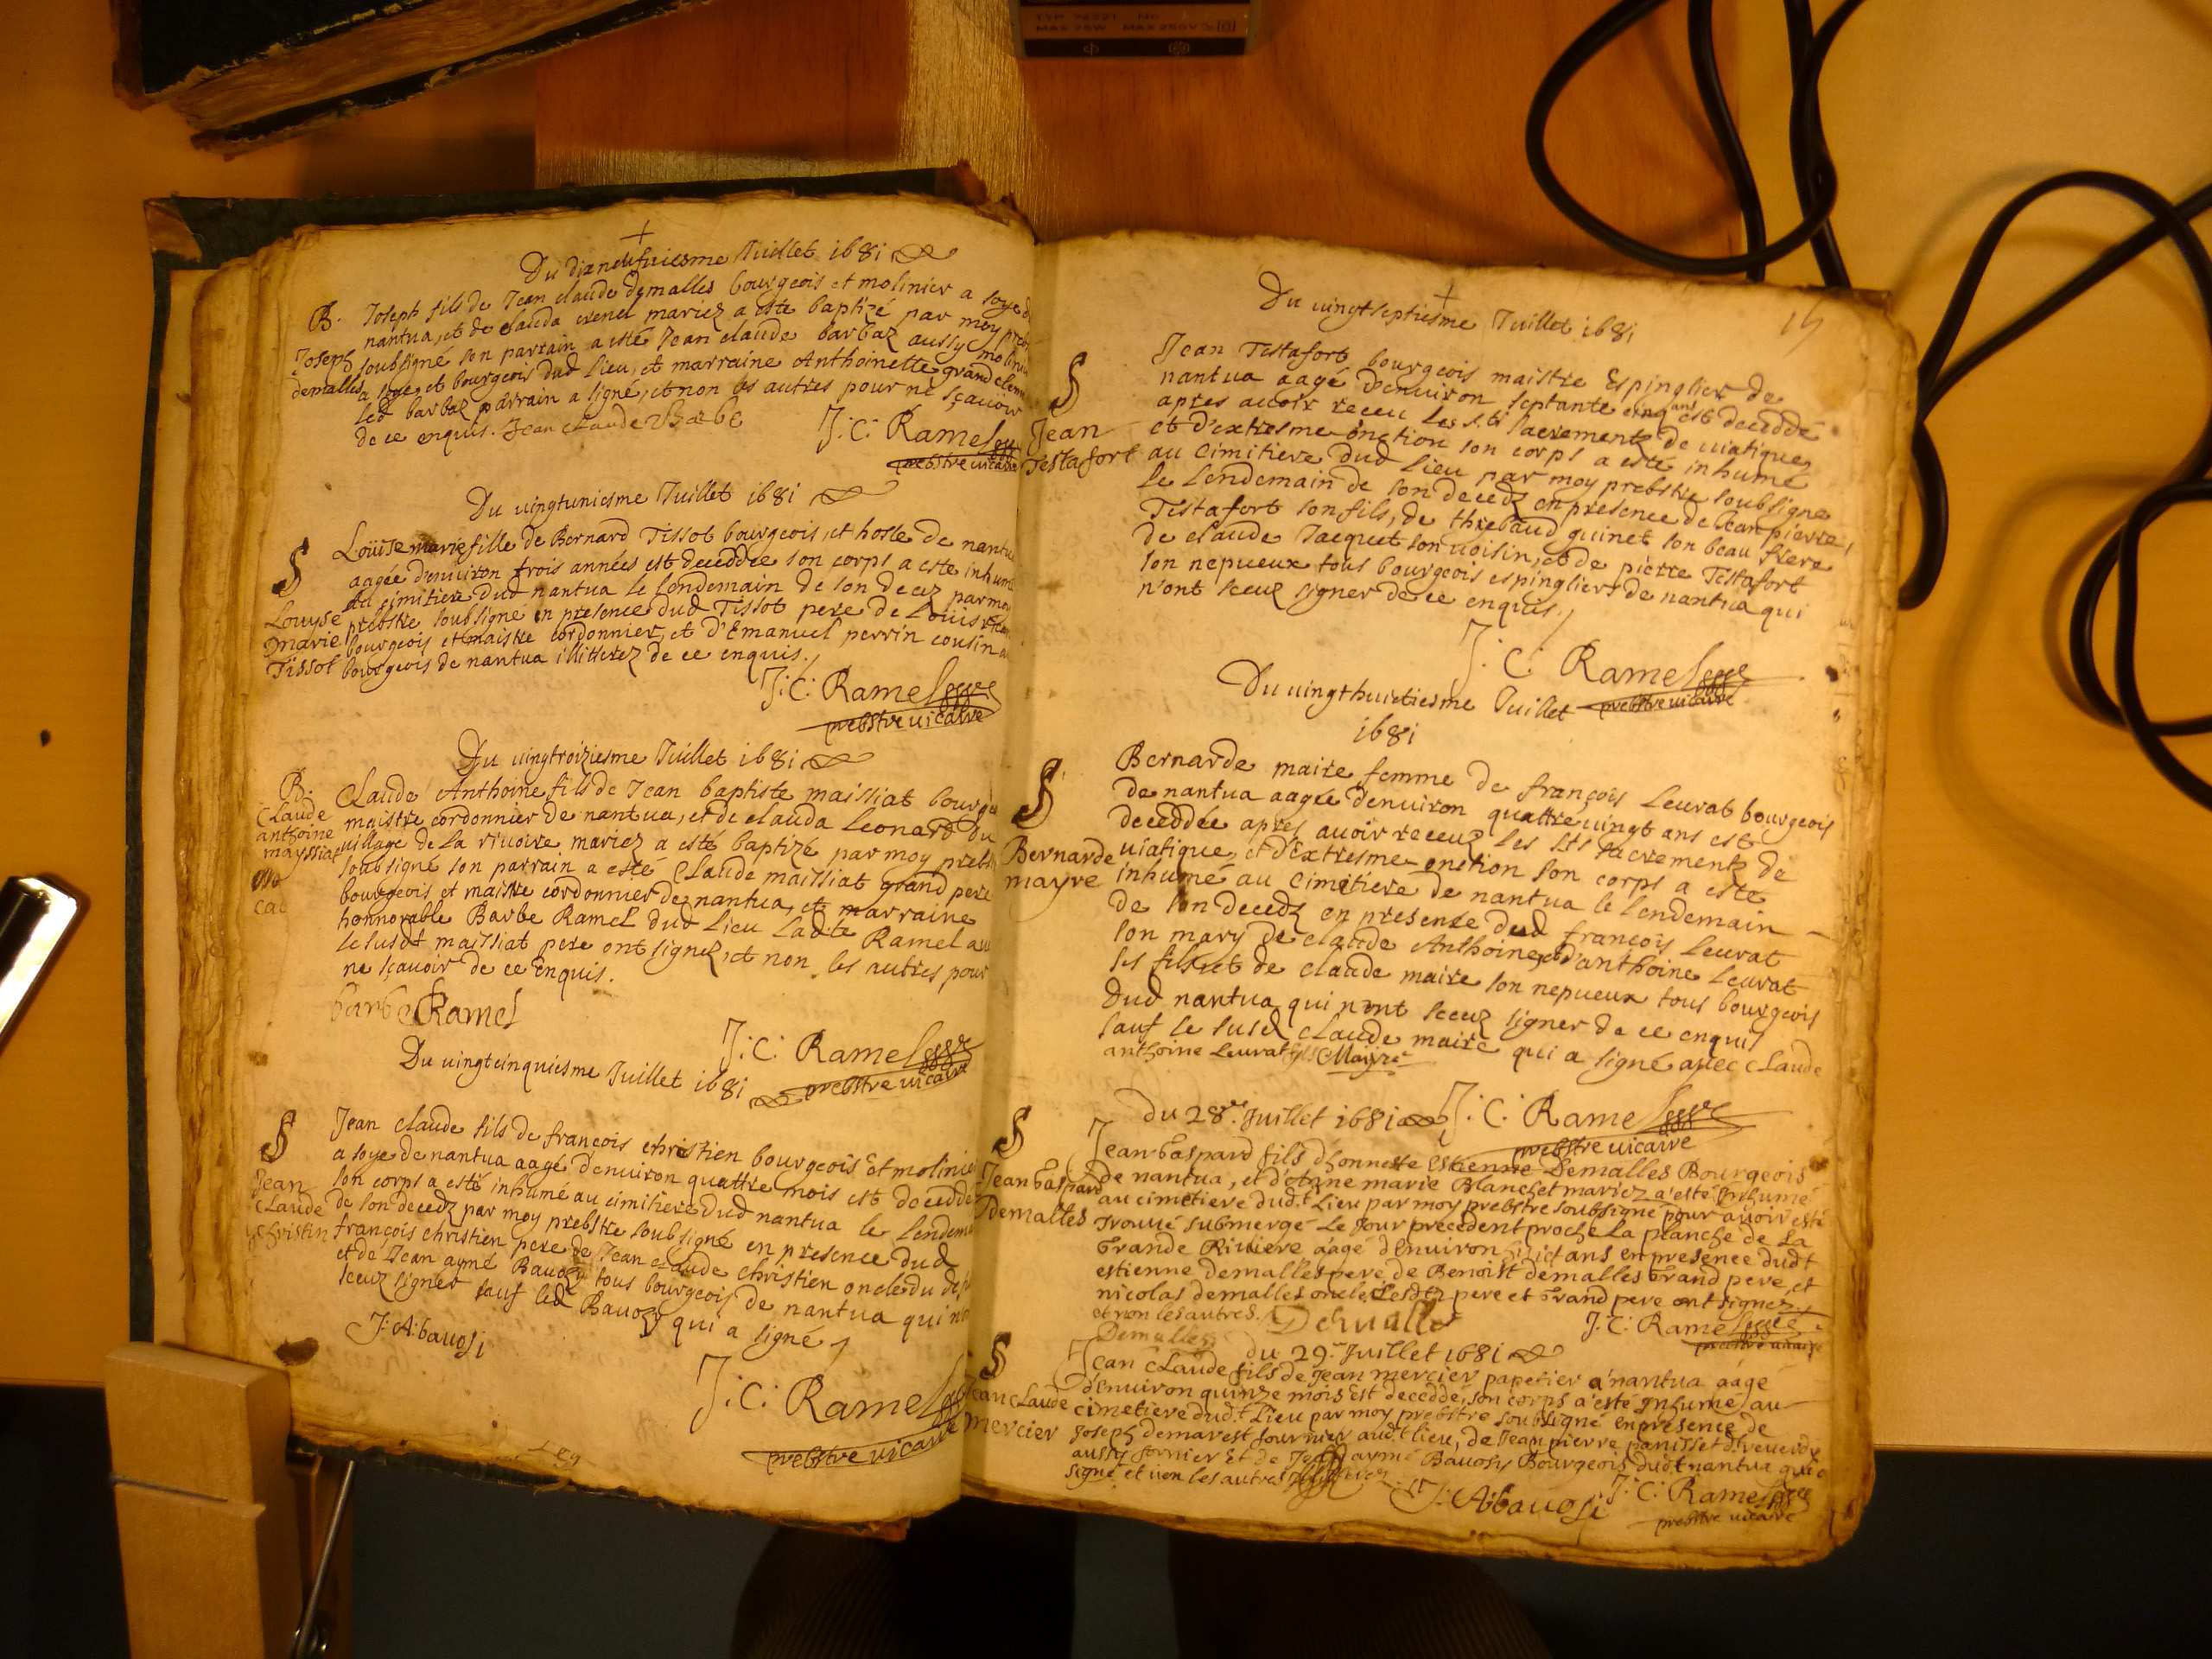 Du dixneufuiesme Juillet 1681
B.
Joseph
demalles
Joseph fils de Jean claude demalles bourgeois et molinier a soye de
nantua, et de clauda mariez a este baptizé par moy preb
soubsigné son parrain a esté Jean claude barbaz aussy molinier
a soye et bourgeois dud lieu, et marraine Anthoinette grand
led barbaz parrain a signé, et non les autres pour ne sçauoir
de ce enquis. Jean Claude Barbe
J: C: Ramel
prebstre uicaire
Du uingtuniesme Juillet 1681
S
Louyse
marie
Tissot
Loüise marie fille de Bernard Tissot bourgeois, et hoste de nantu
aagée d'enuiron trois années est deceddée son corps a este inhumé
au cimitiere dud nantua le lendemain de son decez par moy
prebstre soubsigné en presence dud Tissot pere de Loüis
bourgeois et maistre cordonnier, et d'Emanuel perrin cousin
bourgeois de nantua illitterez de ce enquis.
J: C: Ramel
prebstre uicaire
Du uingtroiziesme Juillet 1681
B.
Claude
anthoine
mayssiat
Claude Anthoine fils de Jean baptiste maissiat bourge
maistre cordonnier de nantua, et de clauda Leonard du
uillage de La riuoire mariez a esté baptizé par moy prebs
soubsigné son parrain a esté Claude maissiat grand pere
bourgeois et maistre cordonnier de nantua, et marraine
honnorable Barbe Ramel dud lieu Ladte Ramel au
le susdt maissiat pere ont signez, et non les autres pour
ne sçauoir de ce enquis.
barbe Ramel
J: C: Ramel
prebstre uicaire
Du uingtcinquiesme Juillet 1681
S
Jean
Claude
christin
Jean claude fils de françois christien bourgeois et molinie
a soye de nantua aagé d'enuiron quattre mois est decedde
son corps a esté inhumé au cimitiere dud nantua le lendem
de son decedz par moy prebstre soubsigné en presence dud
françois christien pere de Jean claude christien oncle du
et de Jean aymé Bauozy tous bourgeois de nantua qui n
sceuz signer sauf led Bauozy qui a signé
J: A: bauosi
J: C: Ramel
prebstre uicaire
Du uingtseptiesme Juillet 1681
S
Jean
Testafort
Jean Testafort bourgeois maistre Espinglier de
nantua aagé d'enuiron septante cinq ans est deceddé
apres auoir receu les sts sacrementz de uiatique,
et d'extresme-onction son corps a esté inhumé
au cimitiere dud lieu par moy prebstre soubsigné
le lendemain de son decedz en presence de Jean pierre
Testafort son fils, de thiebaud guinet son beau frere
de claude Jacquet son uoisin, et de pierre Testafort
son nepueux tous bourgeois espingliers de nantua qui
n'ont sceuz signer de ce enquis.
J: C: Ramel
prebstre uicaire
Du uingthuictiesme Juillet
1681
S
Bernarde
mayre
Bernarde maire femme de françois Leurat bourgeois
de nantua aagée d'enuiron quattre uingt ans est
deceddée apres auoir receuz les sts sacrementz de
uiatique, et d'Extresme-onction son corps a este
inhumé au Cimitiere de nantua le lendemain
de son decedz en presence dud françois leurat
son mary de claude Anthoine, et d'anthoine Leurat
ses fils, et de claude maire son nepueux tous bourgeois
dud nantua qui n'ont sceuz signer de ce enquis
sauf le susd claude maire qui a signé auec Claude
anthoine Leurat fils Mayre
J: C: Ramel
prebstre uicaire
du 28e. Juillet 1681
S
Jean Gaspard
Demalles
Jean Gaspard fils d'honneste Estienne Demalles Bourgeois
de nantua, et d'etienne marie Blanchet mariez a'esté Inhumé
au cimetiere dud.t Lieu par moy prebstre soubsigné pour auoir esté
trouué submergé Le Jour precedent proche La planche de La
Grande Riuiere aagé d'Enuiron huict ans en presence dudt
estienne demalles pere, de Benoist demalles Grand pere, et
nicolas demalles oncle, Lesdtz pere et Grand pere ont signez,
et non les autres. Demalles
Demalles
J: C: Ramel
prebstre uicaire
du 29e. Juillet 1681
S
Jean Claude
mercier
Jean Claude fils de Jean mercier papetier a' nantua aagé
d'enuiron quinze mois Est decedde, son corps a'esté Inhumé au
cimetiere dud.t Lieu par moy prebstre soubsigné en presence de
Joseph demarest fournier aud.t lieu, de Jean pierre panisset
aussy fornier Et de Jean aymé Bauosy Bourgeois dudt nantua qui a
signé et non les autres
J: A: bauosi
J: C: Ramel
prebstre uicaire